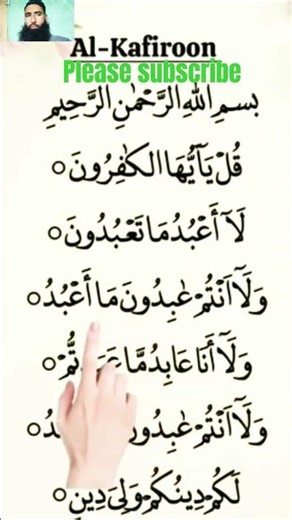 Al-Kafiroon
Please subscribe
بِسْمِ اللهِ الرَّحْمٰنِ الرَّحِيْمِ
قُلْ يَآ أَيُّهَا الكٰفِرُونَ ○
لَآ أَعْبُدُ مَا تَعْبُدُونَ ○
وَلَآ اَنْتُمْ عٰبِدُونَ مَآ أَعْبُدُ ○
وَلَآ أَنَا عَابِدٌ مَّا ○
وَلَآ اَنْتُمْ عٰبِدُونَ ○
لَكُمْ دِينُكُمْ وَلِيَ دِينِ ○